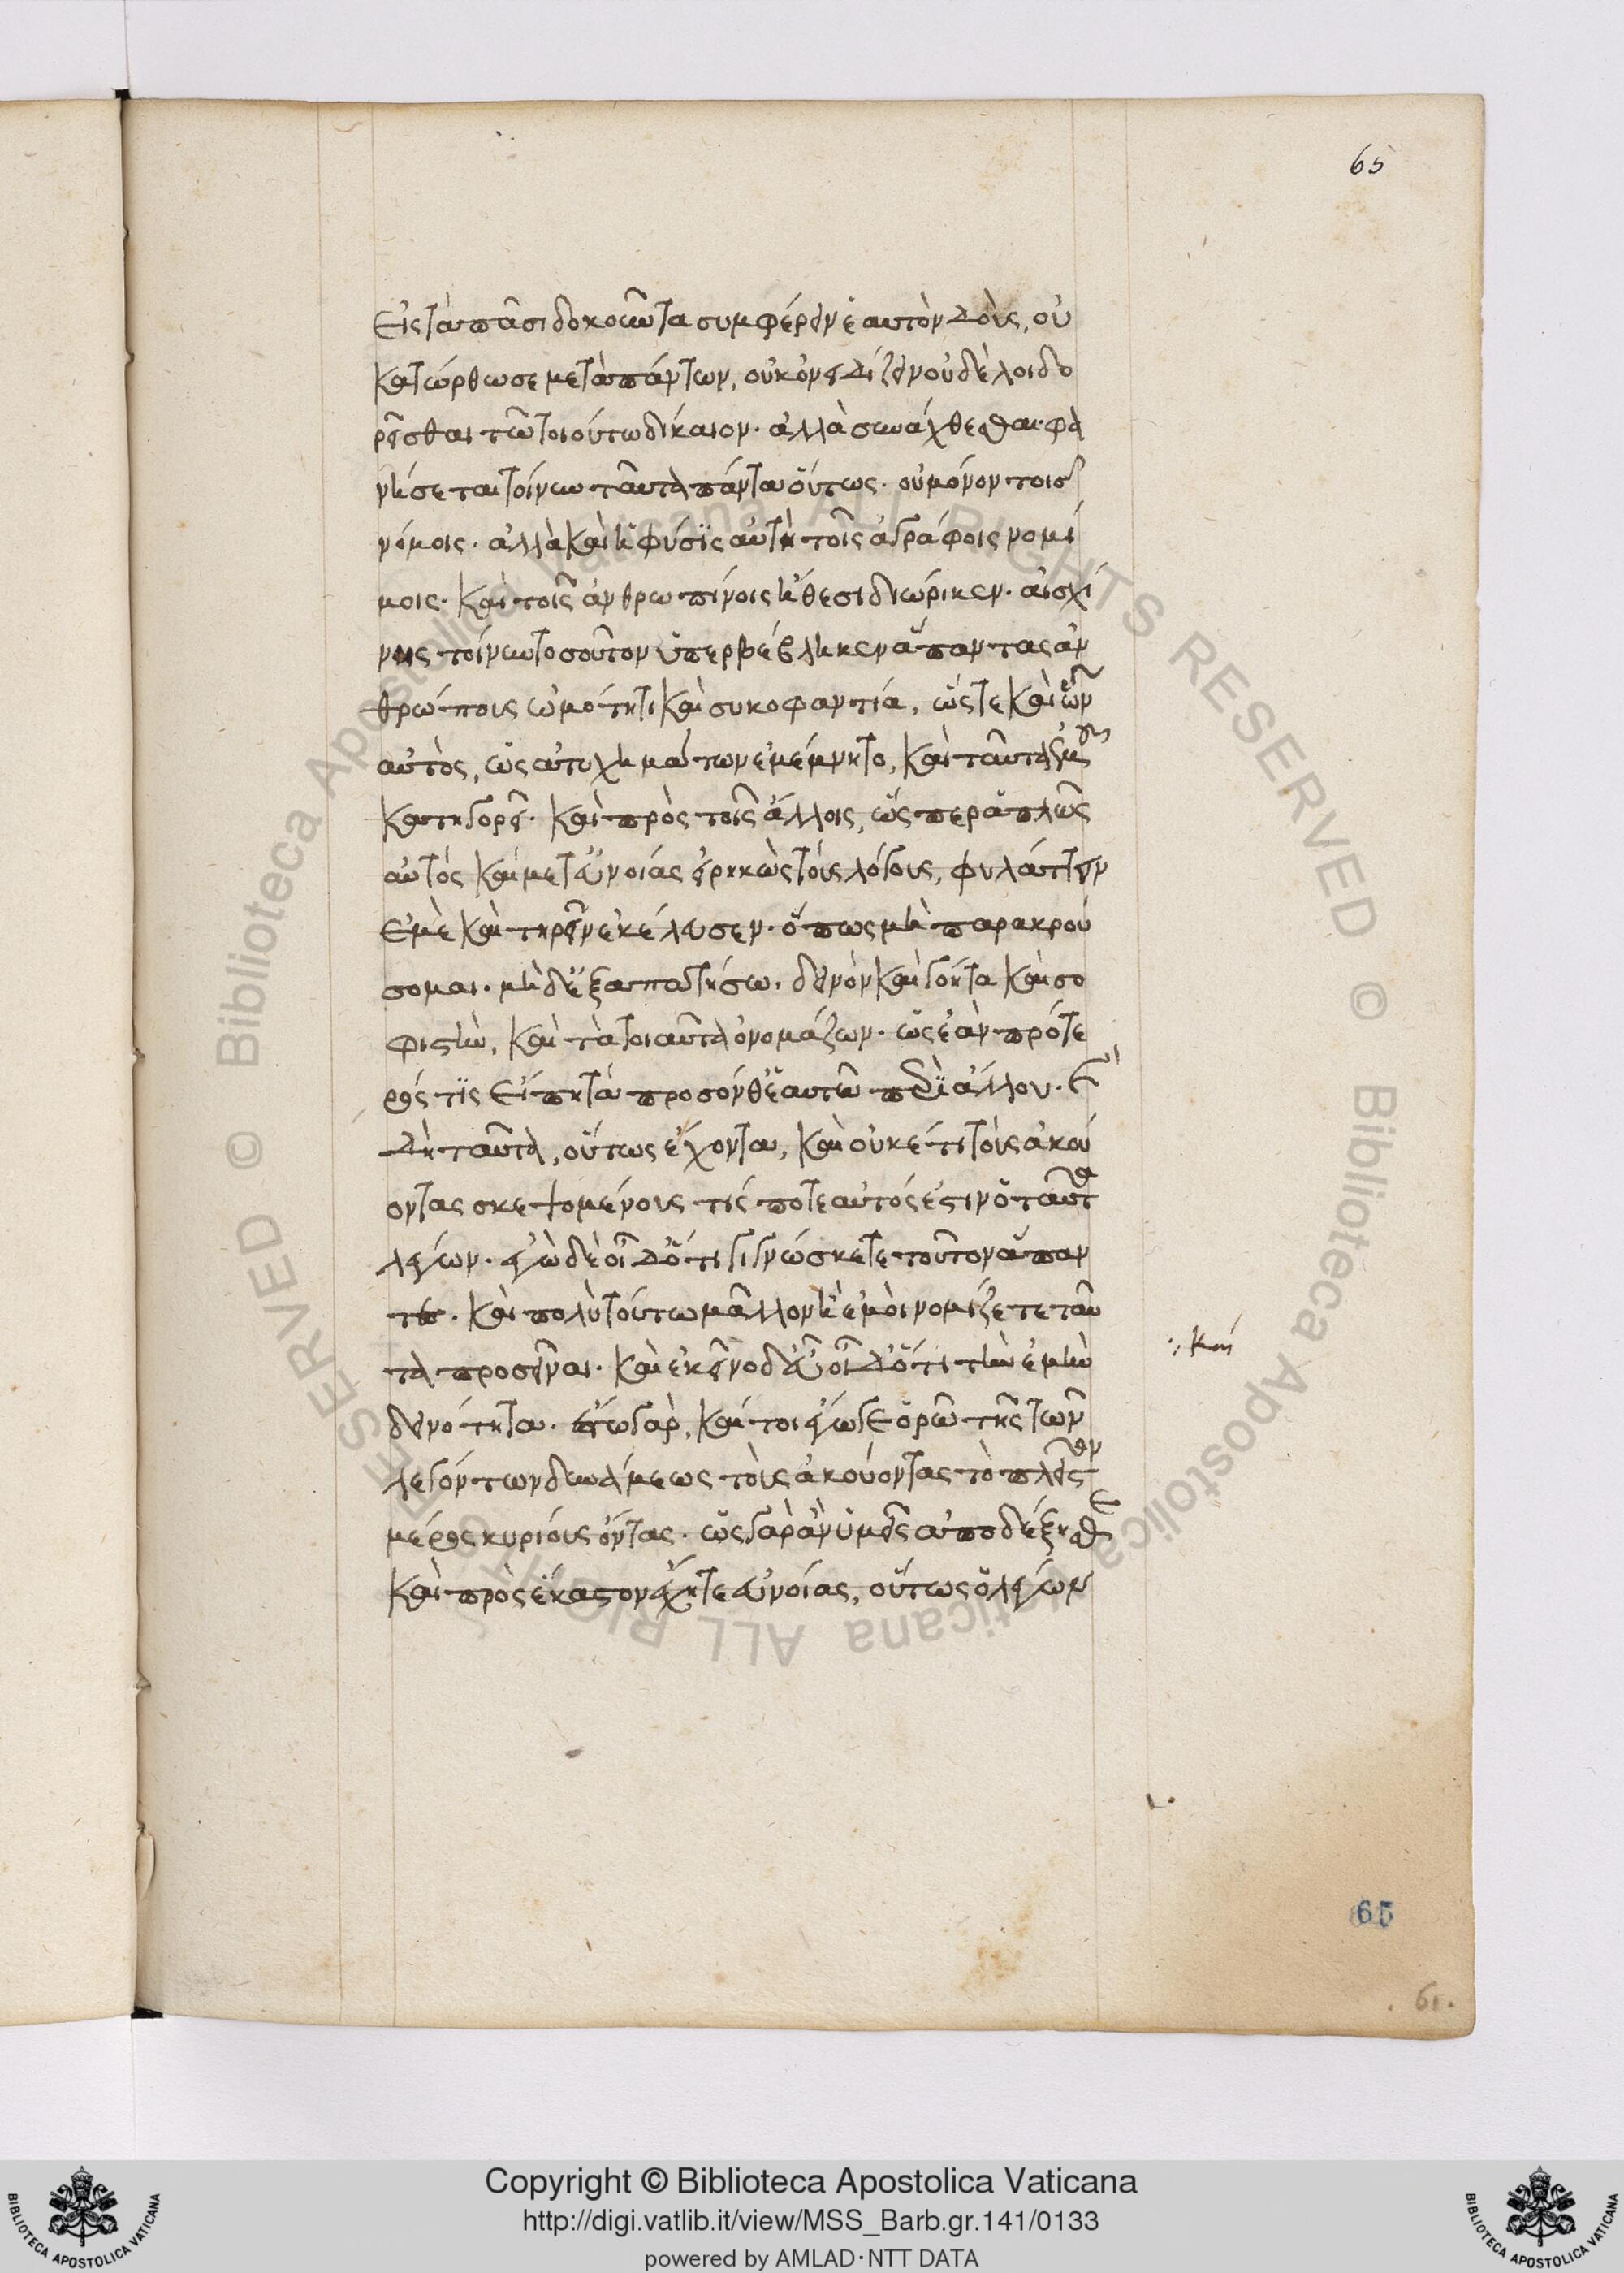 65
εἰς τὰ πᾶσι δοκοῦντα συμφέρειν ἑαυτὸν δοὺς, οὐ
κατώρθωσε μετὰ πάντων, οὐκ ὀνειδίζειν οὐδὲ λοιδο
ρεῖσθαι τῶ τοιούτω δίκαιον. ἀλλὰ συνάχθεσθαι. φα
νήσεται τοίνυν ταῦτα πάντα οὕτως. οὐ μόνον τοῖς
νόμοις. ἀλλὰ καὶ ἡ φύσις αὐτὴ τοῖς ἀγράφοις νομί
μοις. καὶ τοῖς ἀνθρωπίνοις ἤθεσι διώρικεν. αἰσχί
νης τοίνυν τοσοῦτον ὑπερβέβληκεν ἅπαντας ἀν
θρώπους ὠμότητι καὶ συκοφαντία, ὥστε καὶ ὧν
αὐτὸς, ὡς ἀτυχημάτων ἐμέμνητο, καὶ ταῦτα ἐμοῦ
κατηγορεῖ. καὶ πρὸς τοῖς ἄλλοις, ὥσπερ ἁπλῶς
αὐτὸς καὶ μετ' εὐνοίας εἰρηκὼς τοὺς λόγους, φυλάττειν
ἐμὲ καὶ τηρεῖν ἐκέλευσεν. ὅπως μὴ παρακρού
σομαι. μὴδ' ἐξαπατήσω. δεινὸν καὶ γόητα καὶ σο
φιστὴν, καὶ τὰ τοιαῦτα ὀνομάζων. ὡς ἐὰν πρότε
ρός τις εἴπη τὰ προσόνθ' ἑαυτῶ περὶ ἄλλου.
δὴ ταῦτα, οὕτως ἔχοντα, καὶ οὐκέτι τοὺς ἀκού
οντας σκεψομένους τίς ποτε αὐτός ἐστιν ὁ ταῦτα
λέγων. ἐγὼ δὲ οἶδ' ὅτι γιγνώσκετε τοῦτον ἅπαν
τες. καὶ πολὺ τούτω μᾶλλον ἢ ἐμοὶ νομίζετε ταῦ
τα προσεῖναι. καὶ ἐκεῖνο δ' εὖ οἶδ' ὅτι τὴν ἐμὴν
δεινότητα. ἔστω γὰρ, καί τοι ἔγωγε ὁρῶ τῆς τῶν
λεγόντων δυνάμεως τοὺς ἀκούοντας τὸ πλεῖστον
μέρος κυρίους ὄντας. ὡς γὰρ ἂν ὑμεῖς ἀποδέξησθε
καὶ πρὸς ἕκαστον ἔχητε εὐνοίας, οὕτως ὁ λέγων
65
61.
Copyright © Biblioteca Apostolica Vaticana
http://digi.vatlib.it/view/MSS_Barb.gr.141/0133
powered by AMLAD·NTT DATA
BIBLIOTECA APOSTOLICA VATICANA
BIBLIOTECA APOSTOLICA VATICANA
© Biblioteca Apostolica Vaticana ALL RIGHTS RESERVED © Biblioteca Apostolica Vaticana ALL RIGHTS RESERVED